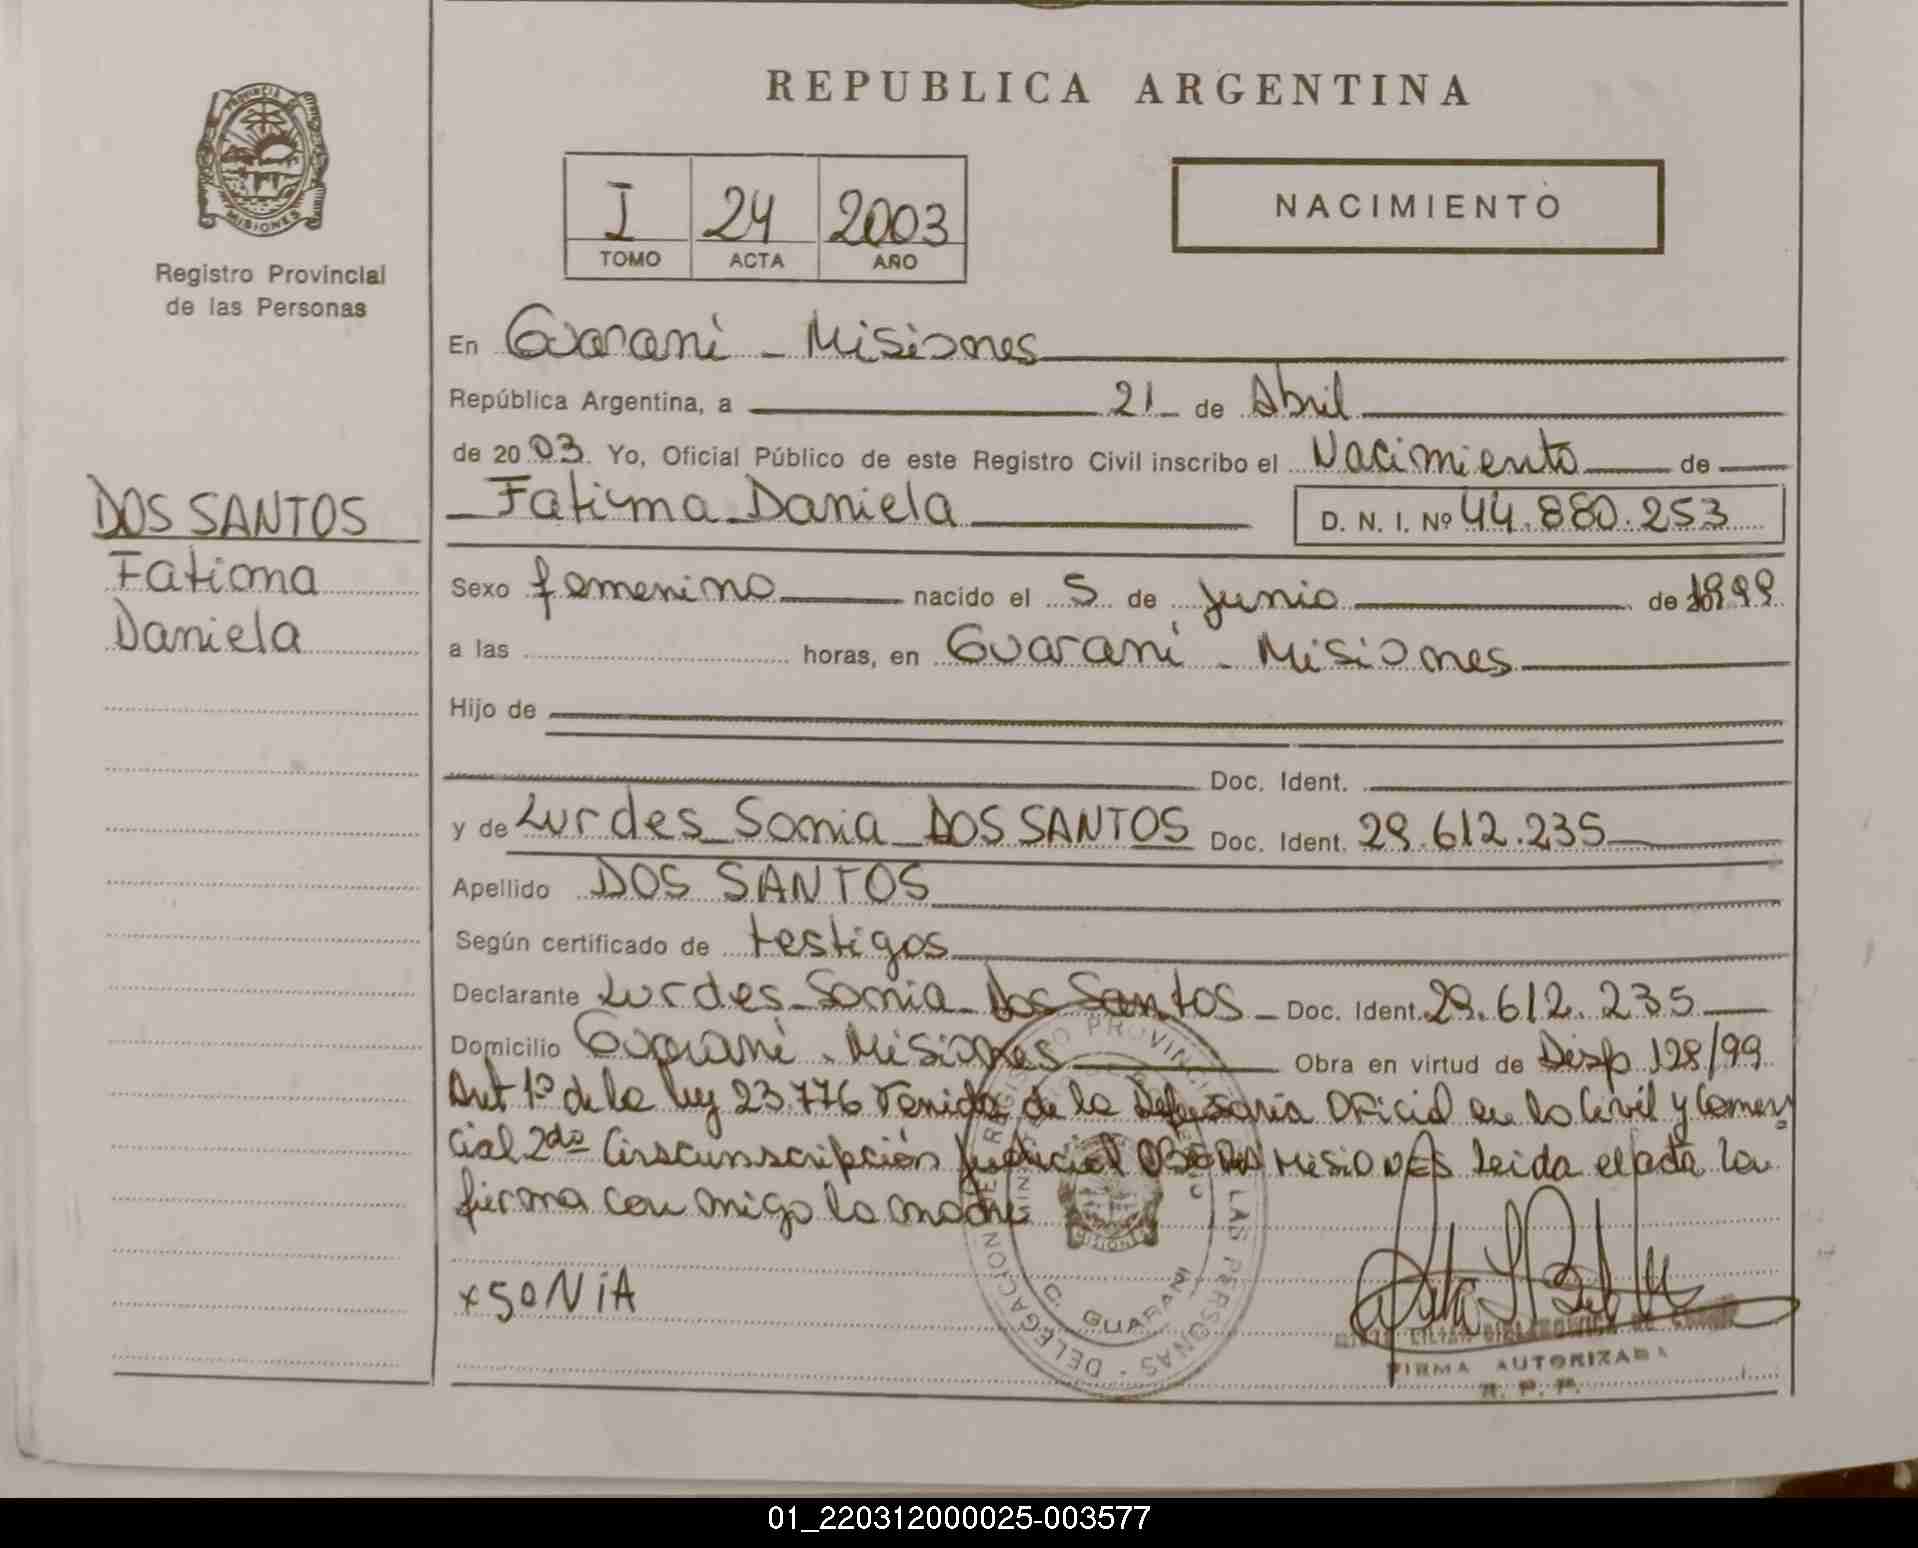 REPUBLICA ARGENTINA
PROVINCIA DE
MISIONES
Registro Provincial
de las Personas
I 24 2003
TOMO ACTA AÑO
NACIMIENTO
DOS SANTOS
Fatima
Daniela
En Guarani - Misiones
República Argentina, a 21 de Abril
de 20 03. Yo, Oficial Público de este Registro Civil inscribo el Nacimiento de
Fatima Daniela D. N. I. Nº 44.880.253
Sexo femenino nacido el 5 de junio de 1999
a las horas, en Guarani - Misiones
Hijo de
Doc. Ident.
y de Lurdes Sonia DOS SANTOS Doc. Ident. 29.612.235
Apellido DOS SANTOS
Según certificado de testigos
Declarante Lurdes Sonia Dos Santos Doc. Ident. 29.612.235
Domicilio Guarani - Misiones Obra en virtud de Disp 128/99
Art 1º de la ley 23.776 Venida de la Defensoria Oficial en lo Civil y Comer
cial 2da Circunscripción Judicial OBERA MISIONES Leida el acta la
firma con migo la madre
x SONIA
REGISTRO PROVINCIAL DE LAS PERSONAS - DELEGACION
MISIONES
C. GUARANI
FIRMA AUTORIZADA
R. P. P.
01_220312000025-003577